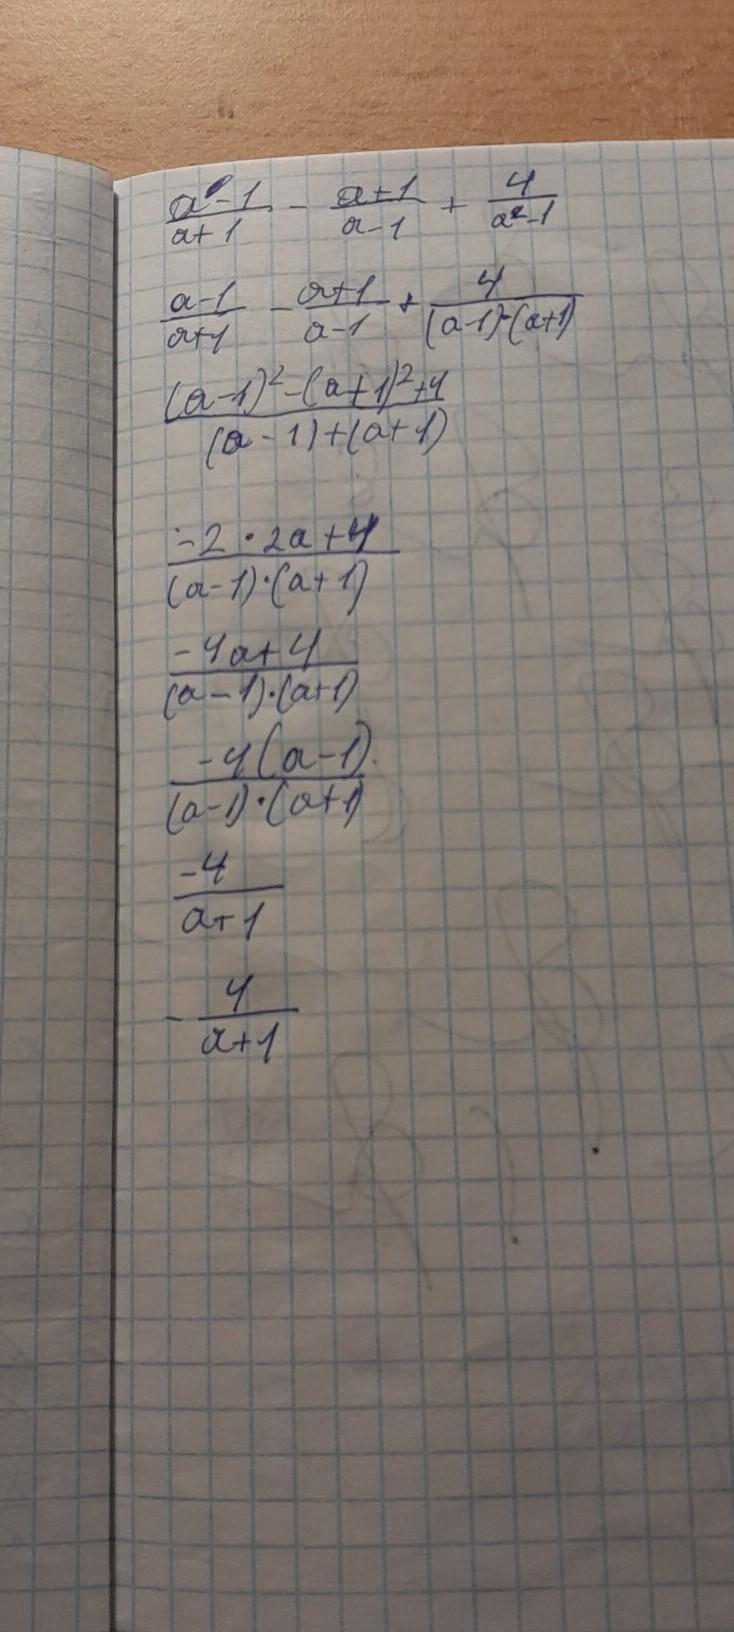 (a-1)/(a+1) - (a+1)/(a-1) + 4/(a²-1)
(a-1)/(a+1) - (a+1)/(a-1) + 4/((a-1)·(a+1))
((a-1)²-(a+1)²+4)/((a-1)+(a+1))
(-2·2a+4)/((a-1)·(a+1))
(-4a+4)/((a-1)·(a+1))
(-4(a-1))/((a-1)·(a+1))
(-4)/(a+1)
- 4/(a+1)